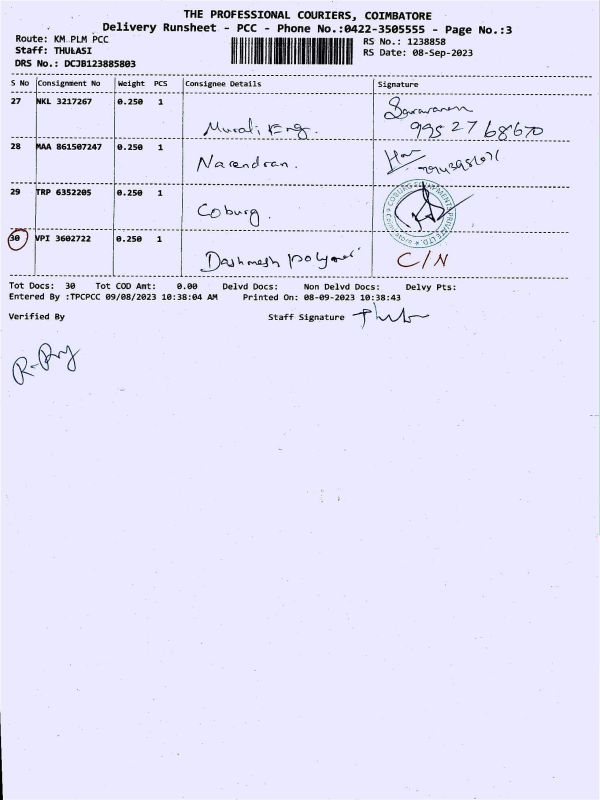 THE PROFESSIONAL COURIERS, COIMBATORE
Delivery Runsheet - PCC - Phone No.:0422-3505555 - Page No.:3
Route: KM PLM PCC
RS No.: 1238858
Staff: THULASI
RS Date: 08-Sep-2023
DRS No.: DCJB123885803
S No Consignment No Weight PCS Consignee Details Signature
27 NKL 3217267 0.250 1
Saravanan
Murali Eng. 99527 68670
28 MAA 861507247 0.250 1
Narendran.
29 TRP 6352205 0.250 1
Coburg.
30 VPI 3602722 0.250 1
Dashmesh polymer C/N
Tot Docs: 30 Tot COD Amt: 0.00 Delvd Docs: Non Delvd Docs: Delvy Pts:
Entered By :TPCPCC 09/08/2023 10:38:04 AM Printed On: 08-09-2023 10:38:43
Verified By Staff Signature